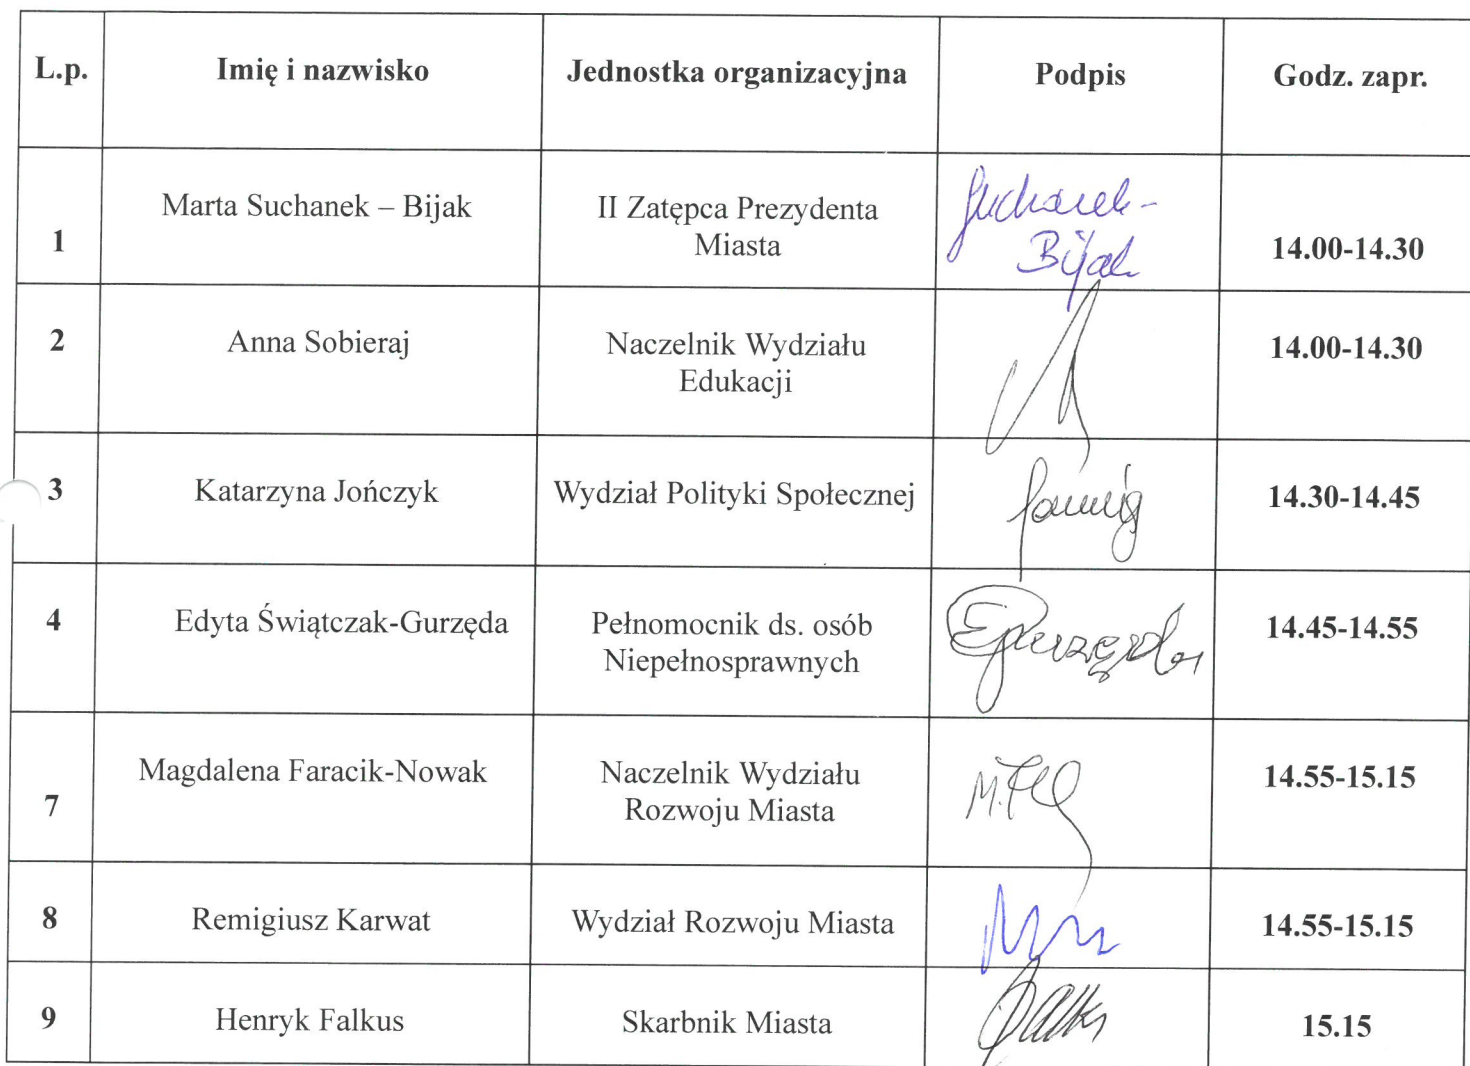 L.p. Imię i nazwisko Jednostka organizacyjna Podpis Godz. zapr.
1 Marta Suchanek – Bijak II Zatępca Prezydenta Miasta Suchanek-Bijak 14.00-14.30
2 Anna Sobieraj Naczelnik Wydziału Edukacji 14.00-14.30
3 Katarzyna Jończyk Wydział Polityki Społecznej 14.30-14.45
4 Edyta Świątczak-Gurzęda Pełnomocnik ds. osób Niepełnosprawnych EGurzęda 14.45-14.55
7 Magdalena Faracik-Nowak Naczelnik Wydziału Rozwoju Miasta 14.55-15.15
8 Remigiusz Karwat Wydział Rozwoju Miasta 14.55-15.15
9 Henryk Falkus Skarbnik Miasta 15.15